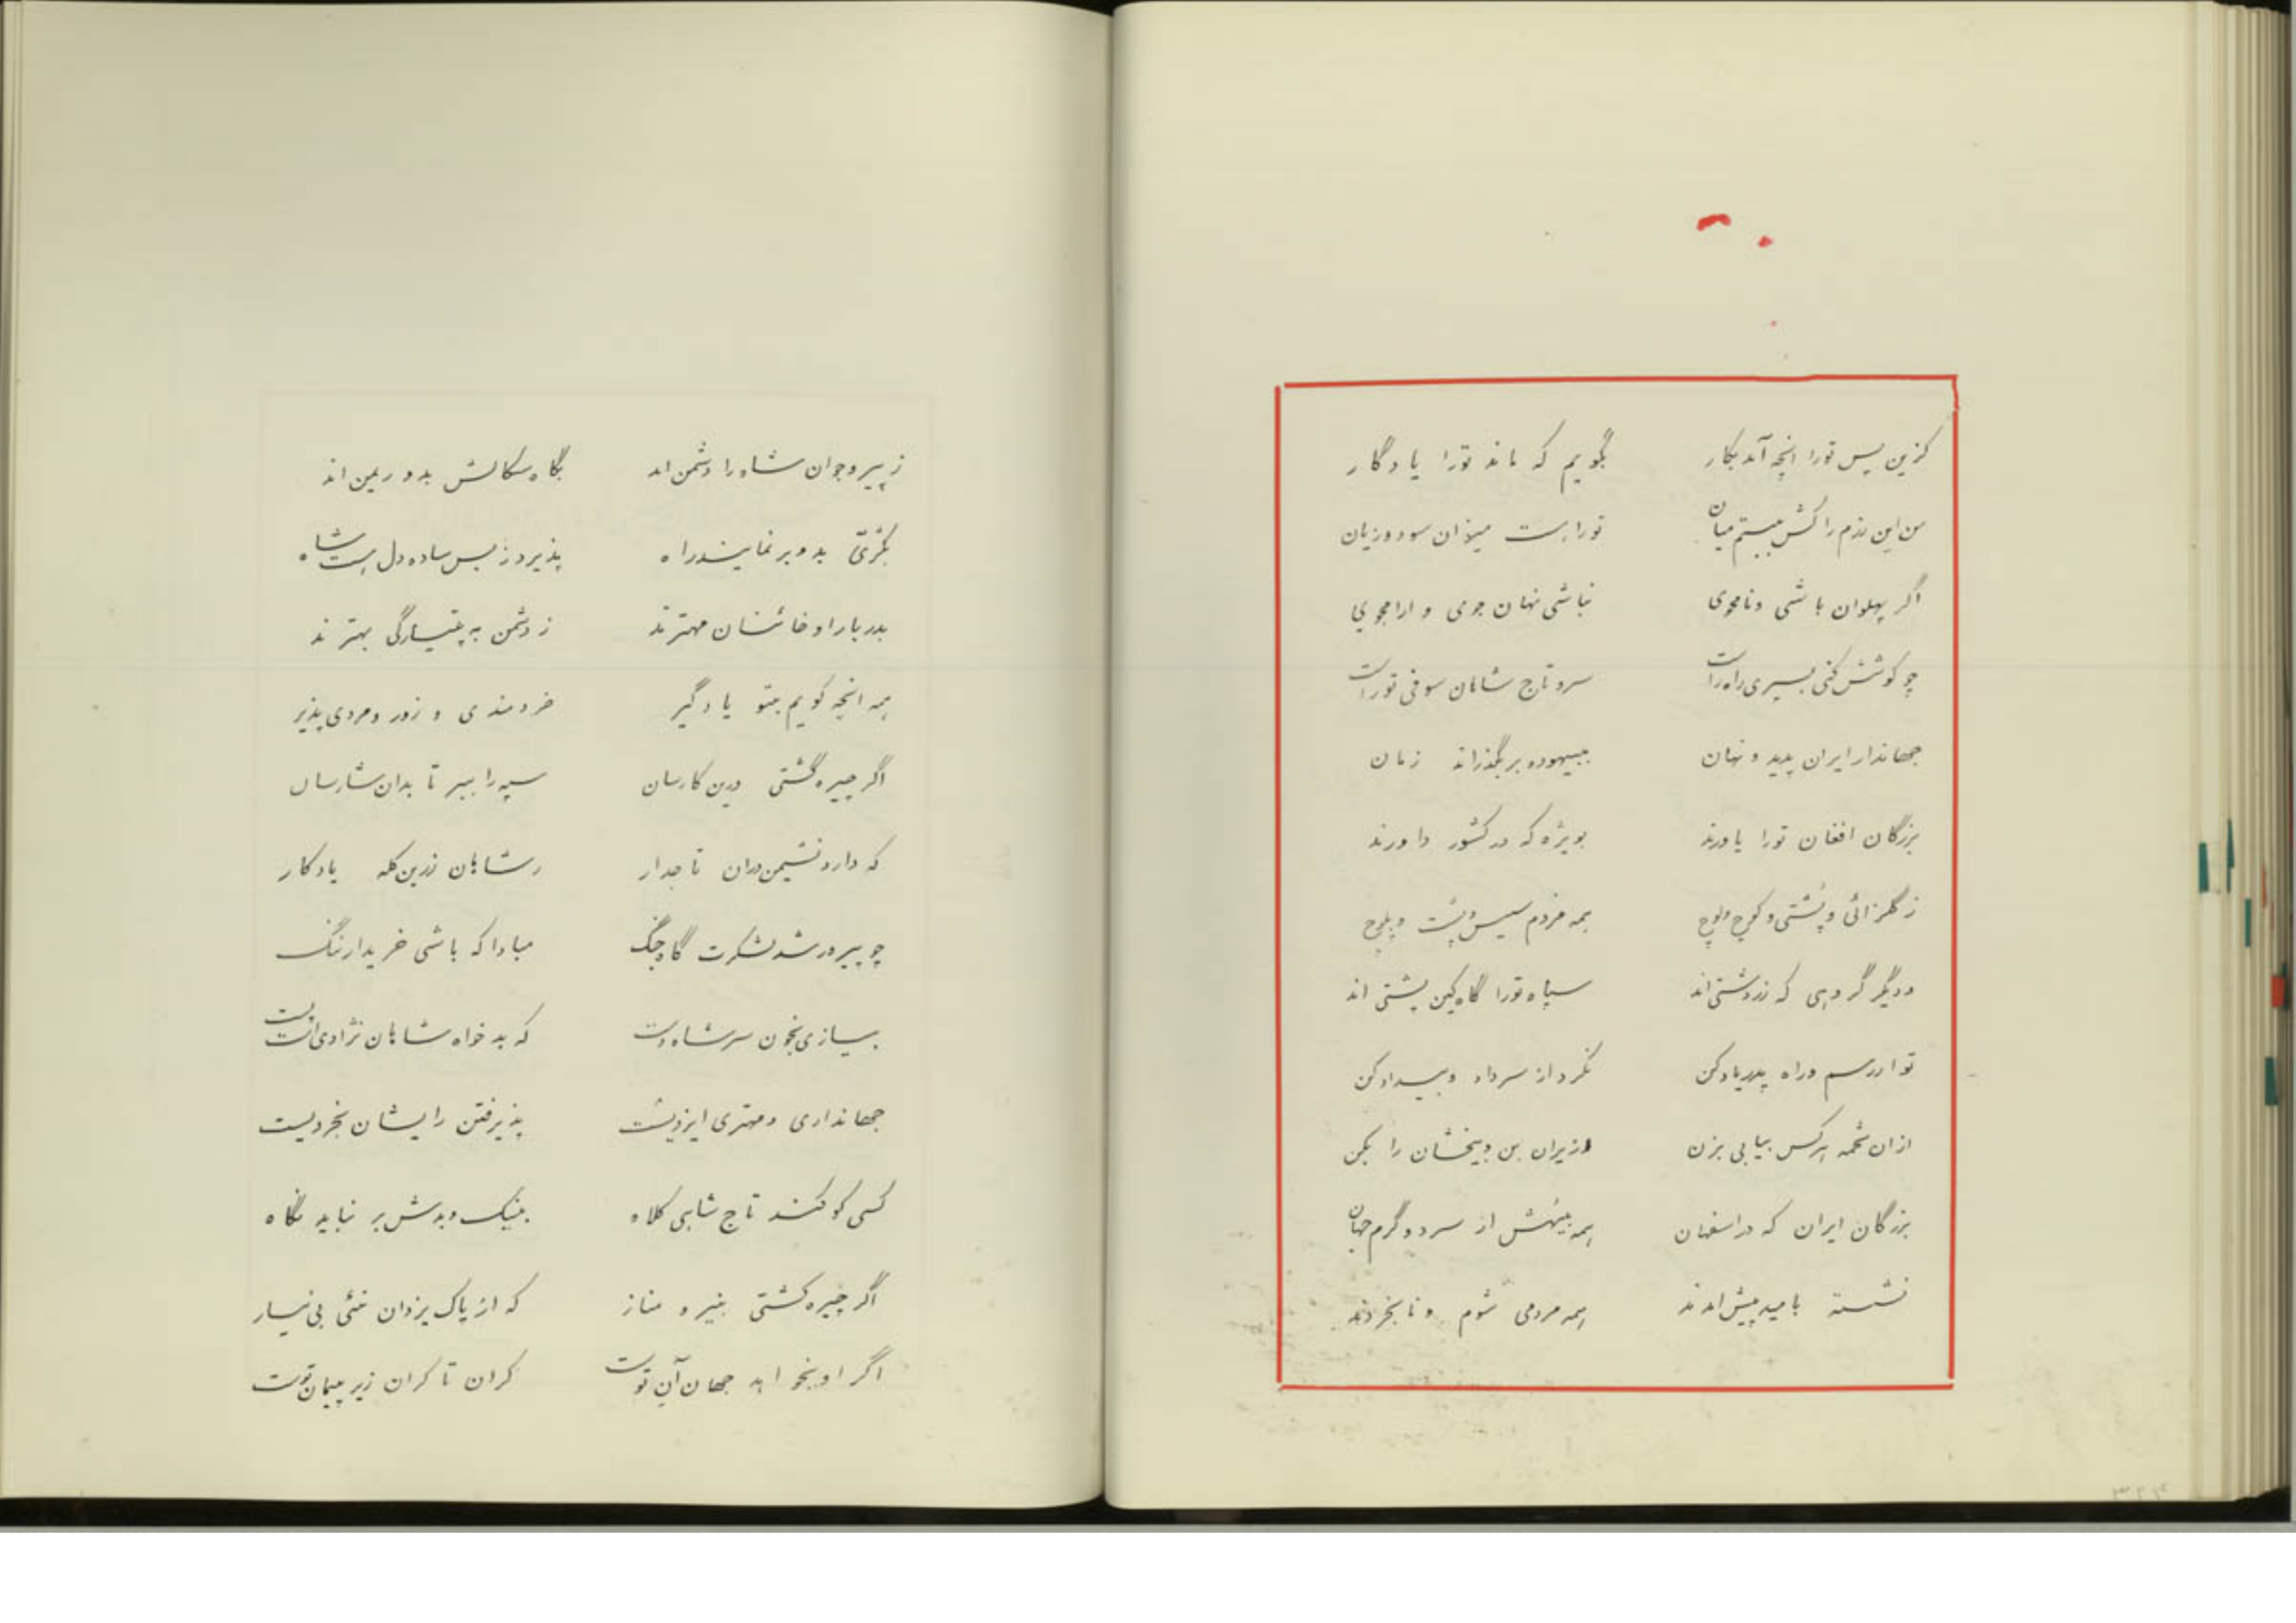 کزین پس تورا انچه آید بکار بگویم که ماند تورا یادگار
من این رزم را کش ببستم میان تورا هست میزان سود و زیان
اگر پهلوان باشی و نامجوی نباشی نهان جوی و ارامجوی
چو کوشش کنی بسپری راه راست سر و تاج شاهان سوفی توراست
جهاندار ایران پدید و نهان ببیهوده بر بگذراند زمان
بزرگان افغان تورا یاورند بویژه که در کشور داورند
ز گلزائی و پشتی و کوچ و لوچ همه مردم سیس و پشت و بلوچ
و دیگر گروهی که زردشتی‌اند سپاه تورا گاه کین پشتی اند
تو از رسم و راه پدر یاد کن نگر داز سر داد و بیداد کن
ازان تخمه هرکس بیابی بزن وزیران بن و بیخشان را بکن
بزرگان ایران که در اسفهان همه بینهش از سرد و گرم جهان
نشسته بامید پیش امدند همه مردمی شوم و نابخردند
ز پیر و جوان شاه را دشمن اند بگاه سکالش بدو ریمن اند
بکژی بدو بر نمایند راه پذیرد ز بس ساده دل هست شاه
بدربار او خائنان مهترند ز دشمن به پتیارگی بهترند
همه انچه گویم بتو یاد گیر خردمندی و زور و مردی پذیر
اگر چیره گشتی درین کارسان سپه را ببر تا بدان شارسان
که دارد نشیمن دران تاجدار ز شاهان زرین کله یادگار
چو پیروز شد لشکرت گاه جنگ مبادا که باشی خریدار ننگ
بیازی بخون سر شاه دست که بدخواه شاهان نژادی است پست
جهانداری و مهتری ایزدیست پذیرفتن رایشان بخردیست
کسی کو کند تاج شاهی کلاه بنیک و بدش بر نباید نگاه
اگر چیره گشتی بنیرو مناز که از پاک یزدان نئی بی نیاز
اگر او بخواهد جهان آن توست کران تا کران زیر پیمان توست